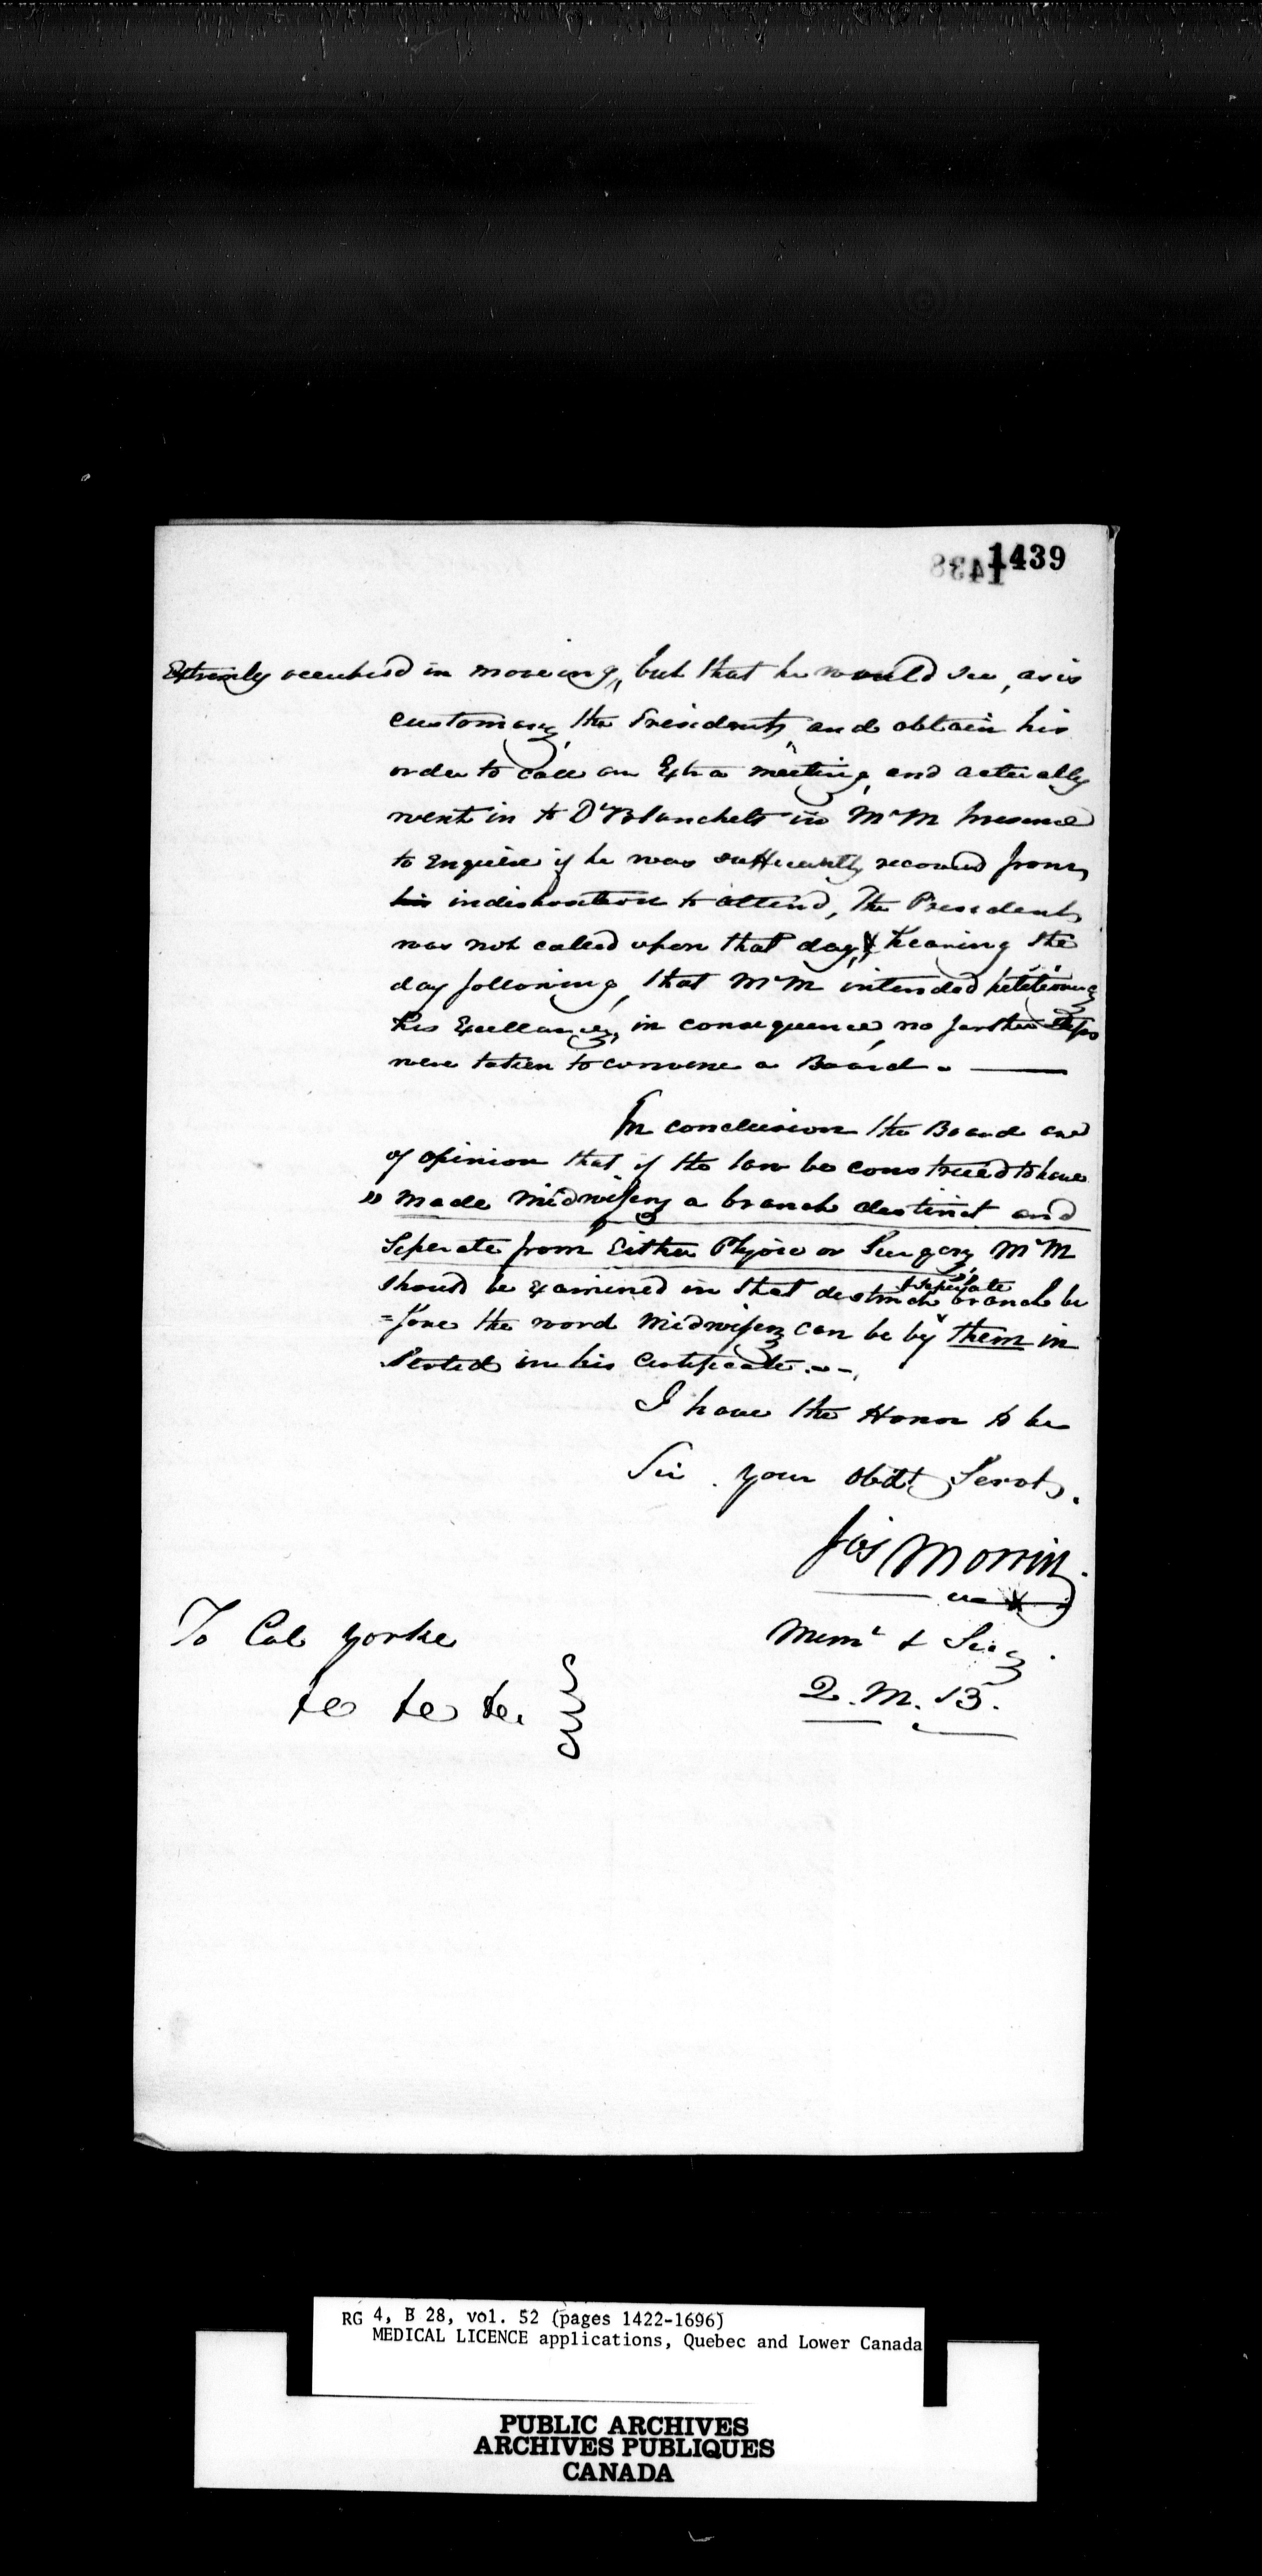 1439
Extrimly occupied in moveing, but that he would see, as is
customary, the President, and obtain his
order to call an Extra meeting, and actually
went in to Dr Blanchets in Mr M presence
to Enquire if he was sufficiently recovered from
his indisposition to attend, The President
was not called upon that day, & hearing the
day following, that Mr M intended petitioning
his Excellency, in consequence, no further steps
were taken to convene a Board. —
In conclusion the Board are
of opinion that if the law be construed to have
" made Midwifery a branch destinct and
Seperate from Either Physic or Surgery Mr M
should be Examined in that destinct & seperate branch be
=fore the word Midwifery can be by them in
serted in his Certificate.—
I have the Honor to be
Sir . your Obdt Servt.
Jos Morrin.
Memr & Secy.
Q. M. B.
To Col Yorke
&c &c &c.
RG 4, B 28, vol. 52 (pages 1422-1696)
MEDICAL LICENCE applications, Quebec and Lower Canada
PUBLIC ARCHIVES
ARCHIVES PUBLIQUES
CANADA